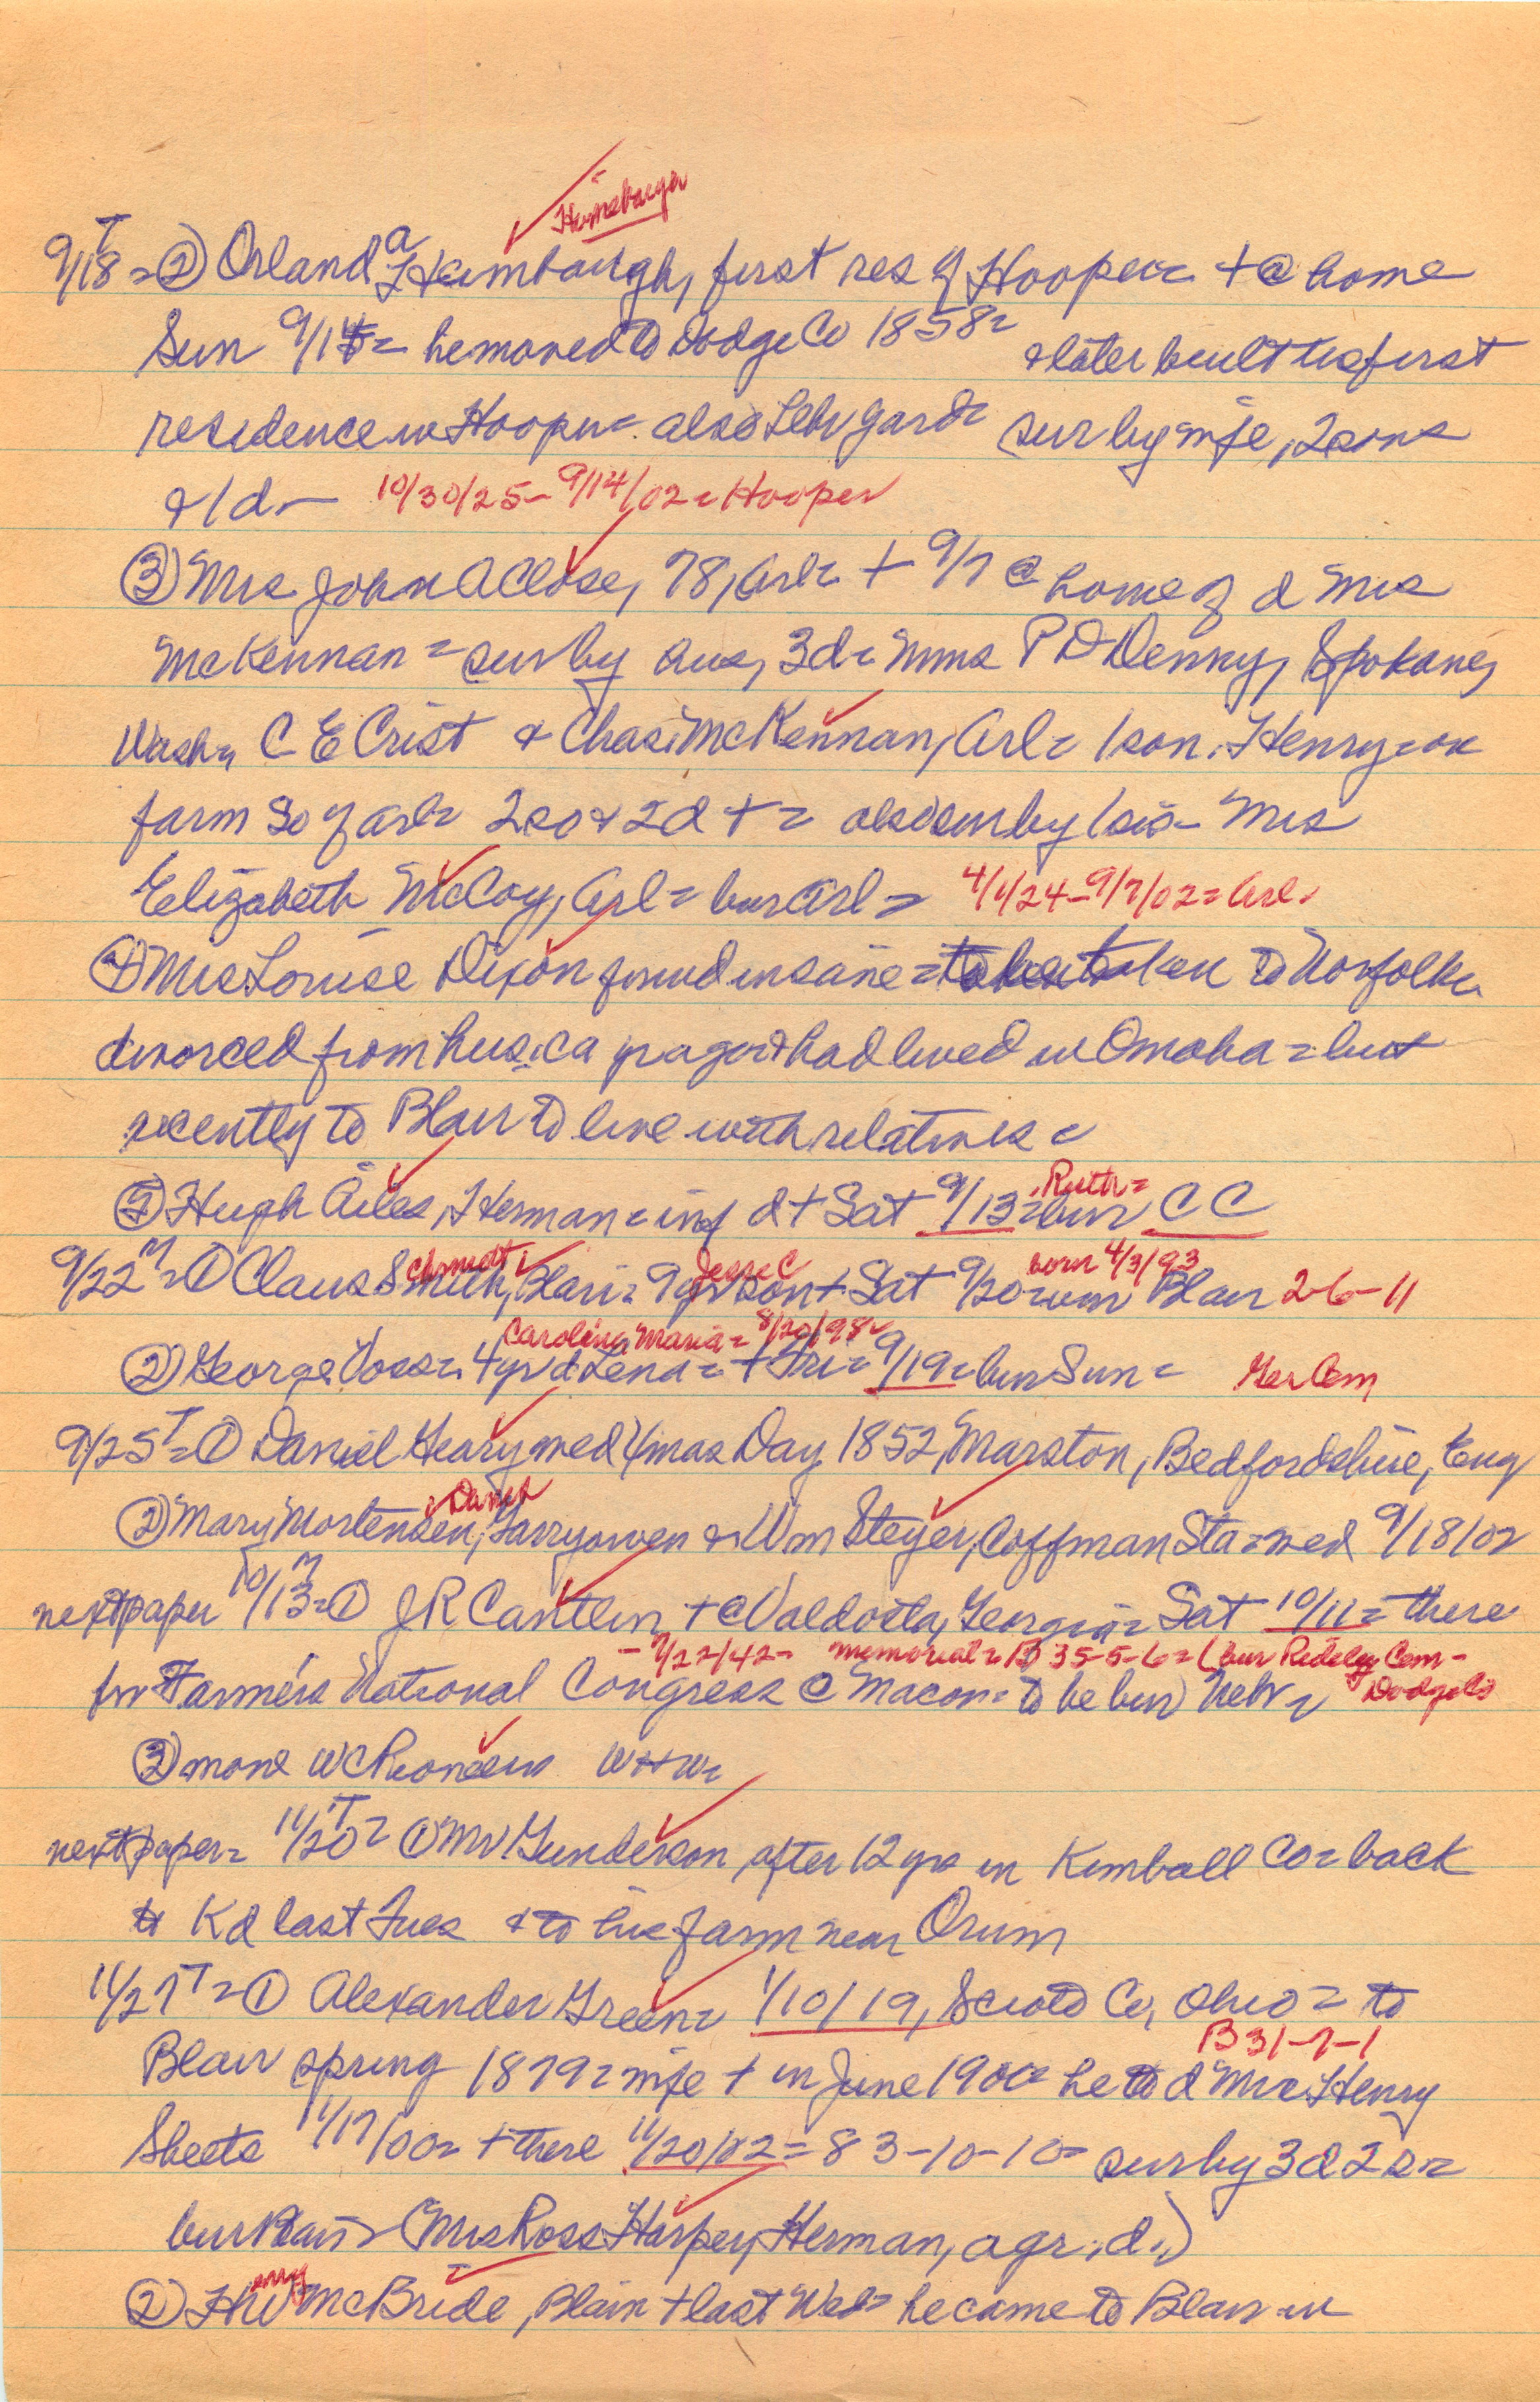 Heimebaugh
9/18 T = ② Orland a Heimbaugh, first res of Hooper = + @ home
Sun 9/14 = he moved to Dodge Co 1858 = & later built its first
residence in Hooper = also Lehr gard = sur by wife, 2 sons
& 1 d - 10/30/25 - 9/14/02 = Hooper
③ Mrs John A Close, 78, Arl = + 9/7 @ home of d Mrs
McKennan = sur by hus, 3 d = Mmes P D Denny, Spokane,
Wash, C E Crist & Chas McKennan, Arl = 1 son, Henry = on
farm So of Arl = 2 so & 2 d + = also sur by 1 sis - Mrs
Elizabeth McCoy, Arl = bur Arl = 4/1/24 - 9/7/02 = Arl.
④ Mrs Louise Dixon found insane = to be taken to Norfolk
divorced from hus ca yr ago & had lived in Omaha = but
recently to Blair to live with relatives =
⑤ Hugh Ailes, Herman = inf d + Sat 9/13 = bur C C
Ruth =
9/22 M = ① Claus Smith, Blair = 9 yr son + Sat 9/20 = bur Blair 26-11
Schmidt Jesse C born 4/3/93
② George Voss = 4 yr d Lena = + Fri = 9/19 = bur Sun = Ger Cem
Carolina Maria = 8/20/98
9/25 T = ① Daniel Geary wed Xmas Day 1852, Marston, Bedfordshire, Eng
② Mary Mortensen, Garryowen & Wm Steyer, Coffman Sta = wed 9/18/02
next paper 10/13 M = ① J R Cantlin + @ Valdosta, Georgia = Sat 10/11 = there
- 9/22/42 - memorial = B 35-5-6 = (bur Rideley Cem - Dodge Co
for Farmers National Congress @ Macon = to be bur Nebr =
② more WC Pioneers
next paper = 11/20 T = ① MV Gunderson, after 12 yrs in Kimball Co = back
to Kd last Tues & to his farm near Orum
11/27 T = ① Alexander Green = 1/10/19, Scioto Co, Ohio = to
B 31-7-1
Blair spring 1879 = wife + in June 1900 = he to d Mrs Henry
Sheets 11/17/00 = + there 11/20/02 = 83-10-10 = sur by 3 d 2 s =
bur Blair = (Mrs Ross Harper, Herman, a gr. d.)
② HW McBride, Blair + last Wed = he came to Blair in